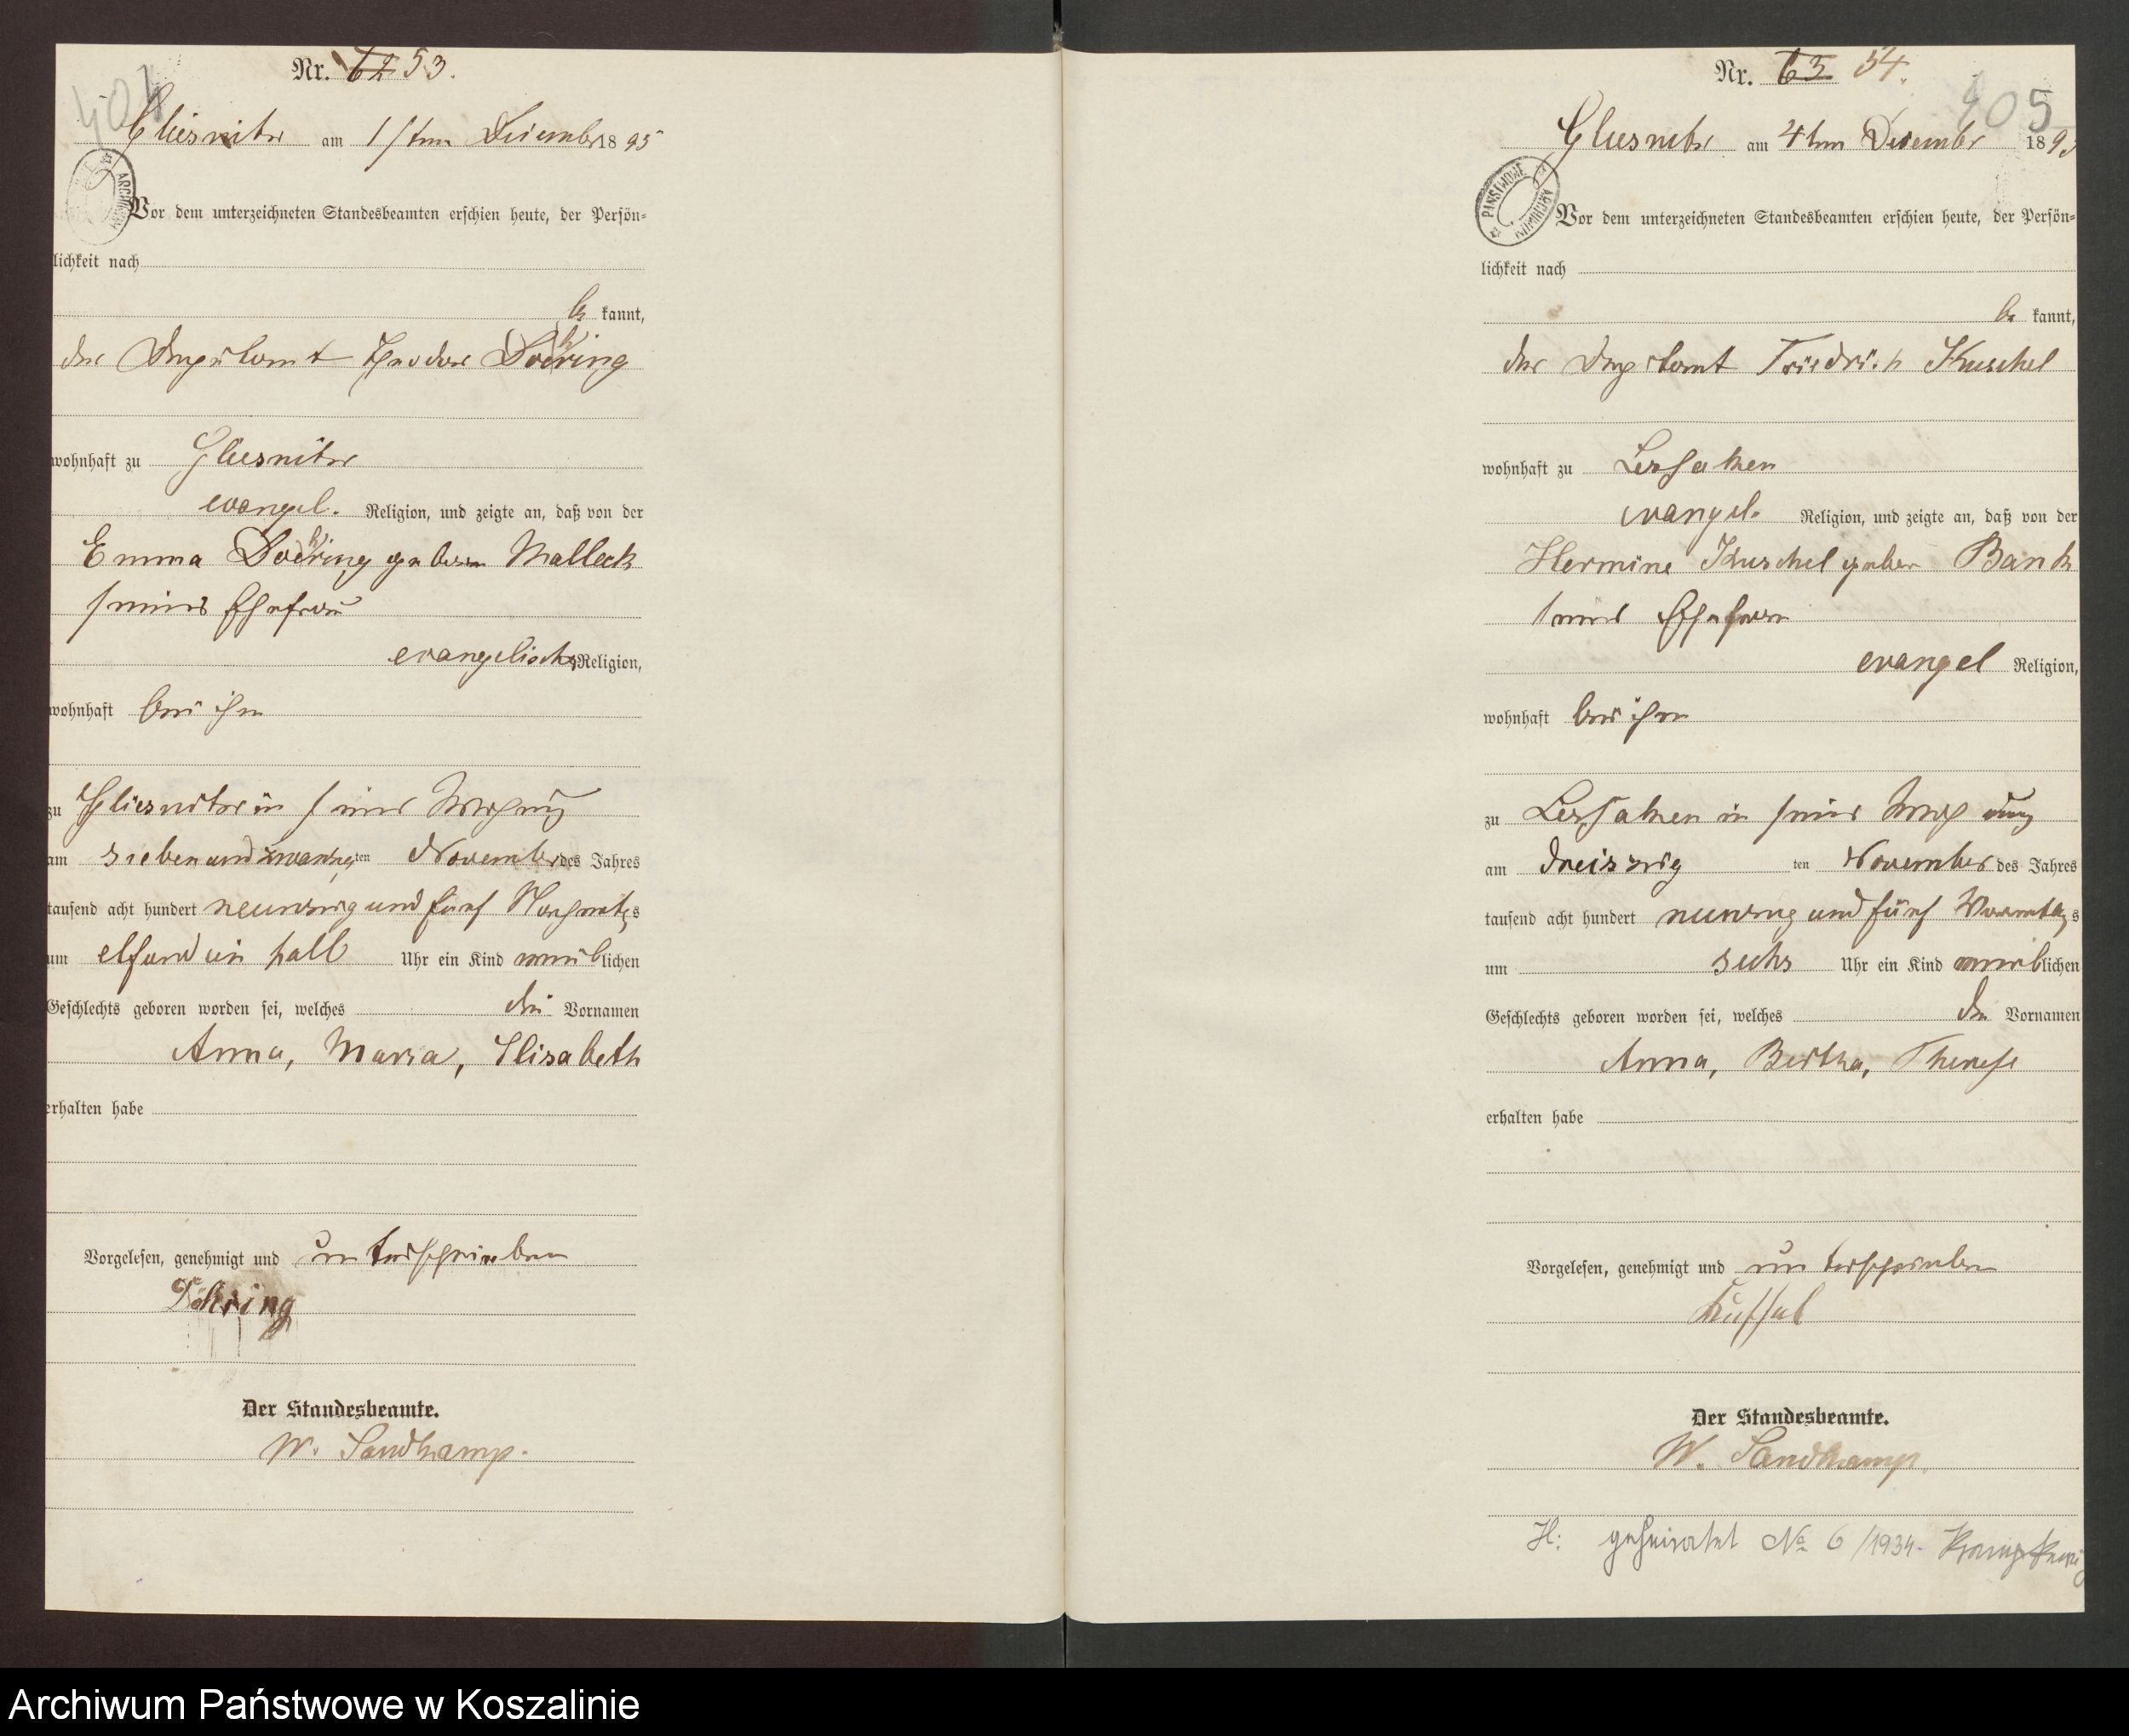 Nr. 62 53.
404
Gliesnitz am 1ten Dezember 1895
ARCHIWUM
Vor dem unterzeichneten Standesbeamten erschien heute, der Persön-
lichkeit nach
be kannt,
der Deputant Theodor Doehring
wohnhaft zu Gliesnitz
evangel. Religion, und zeigte an, daß von der
Emma Doehring geboren Malleck
seiner Ehefrau
evangelischer Religion,
wohnhaft bei ihm
zu Gliesnitz in seiner Wohnung
am siebenundzwanzigten November des Jahres
tausend acht hundert neunzig und fünf Nachmittags
um elf und ein halb Uhr ein Kind weiblichen
Geschlechts geboren worden sei, welches die Vornamen
Anna, Maria, Elisabeth
erhalten habe
Vorgelesen, genehmigt und unterschrieben
Döhring
Der Standesbeamte.
W. Sandkamp.
Nr. 63 54.
405
Gliesnitz am 4ten Dezember 1895
PAŃSTWOWE ARCHIWUM
Vor dem unterzeichneten Standesbeamten erschien heute, der Persön-
lichkeit nach
be kannt,
der Deputant Friedrich Kuschel
wohnhaft zu Lessaken
evangel. Religion, und zeigte an, daß von der
Hermine Kuschel geboren Bank
seiner Ehefrau
evangel Religion,
wohnhaft bei ihm
zu Lessaken in seiner Wohnung
am dreiszig ten November des Jahres
tausend acht hundert neunzig und fünf Vormittags
um sechs Uhr ein Kind weiblichen
Geschlechts geboren worden sei, welches die Vornamen
Anna, Bertha, Therese
erhalten habe
Vorgelesen, genehmigt und unterschrieben
Kuschel
Der Standesbeamte.
W. Sandkamp.
H: geheiratet No 6/1934.
Archiwum Państwowe w Koszalinie